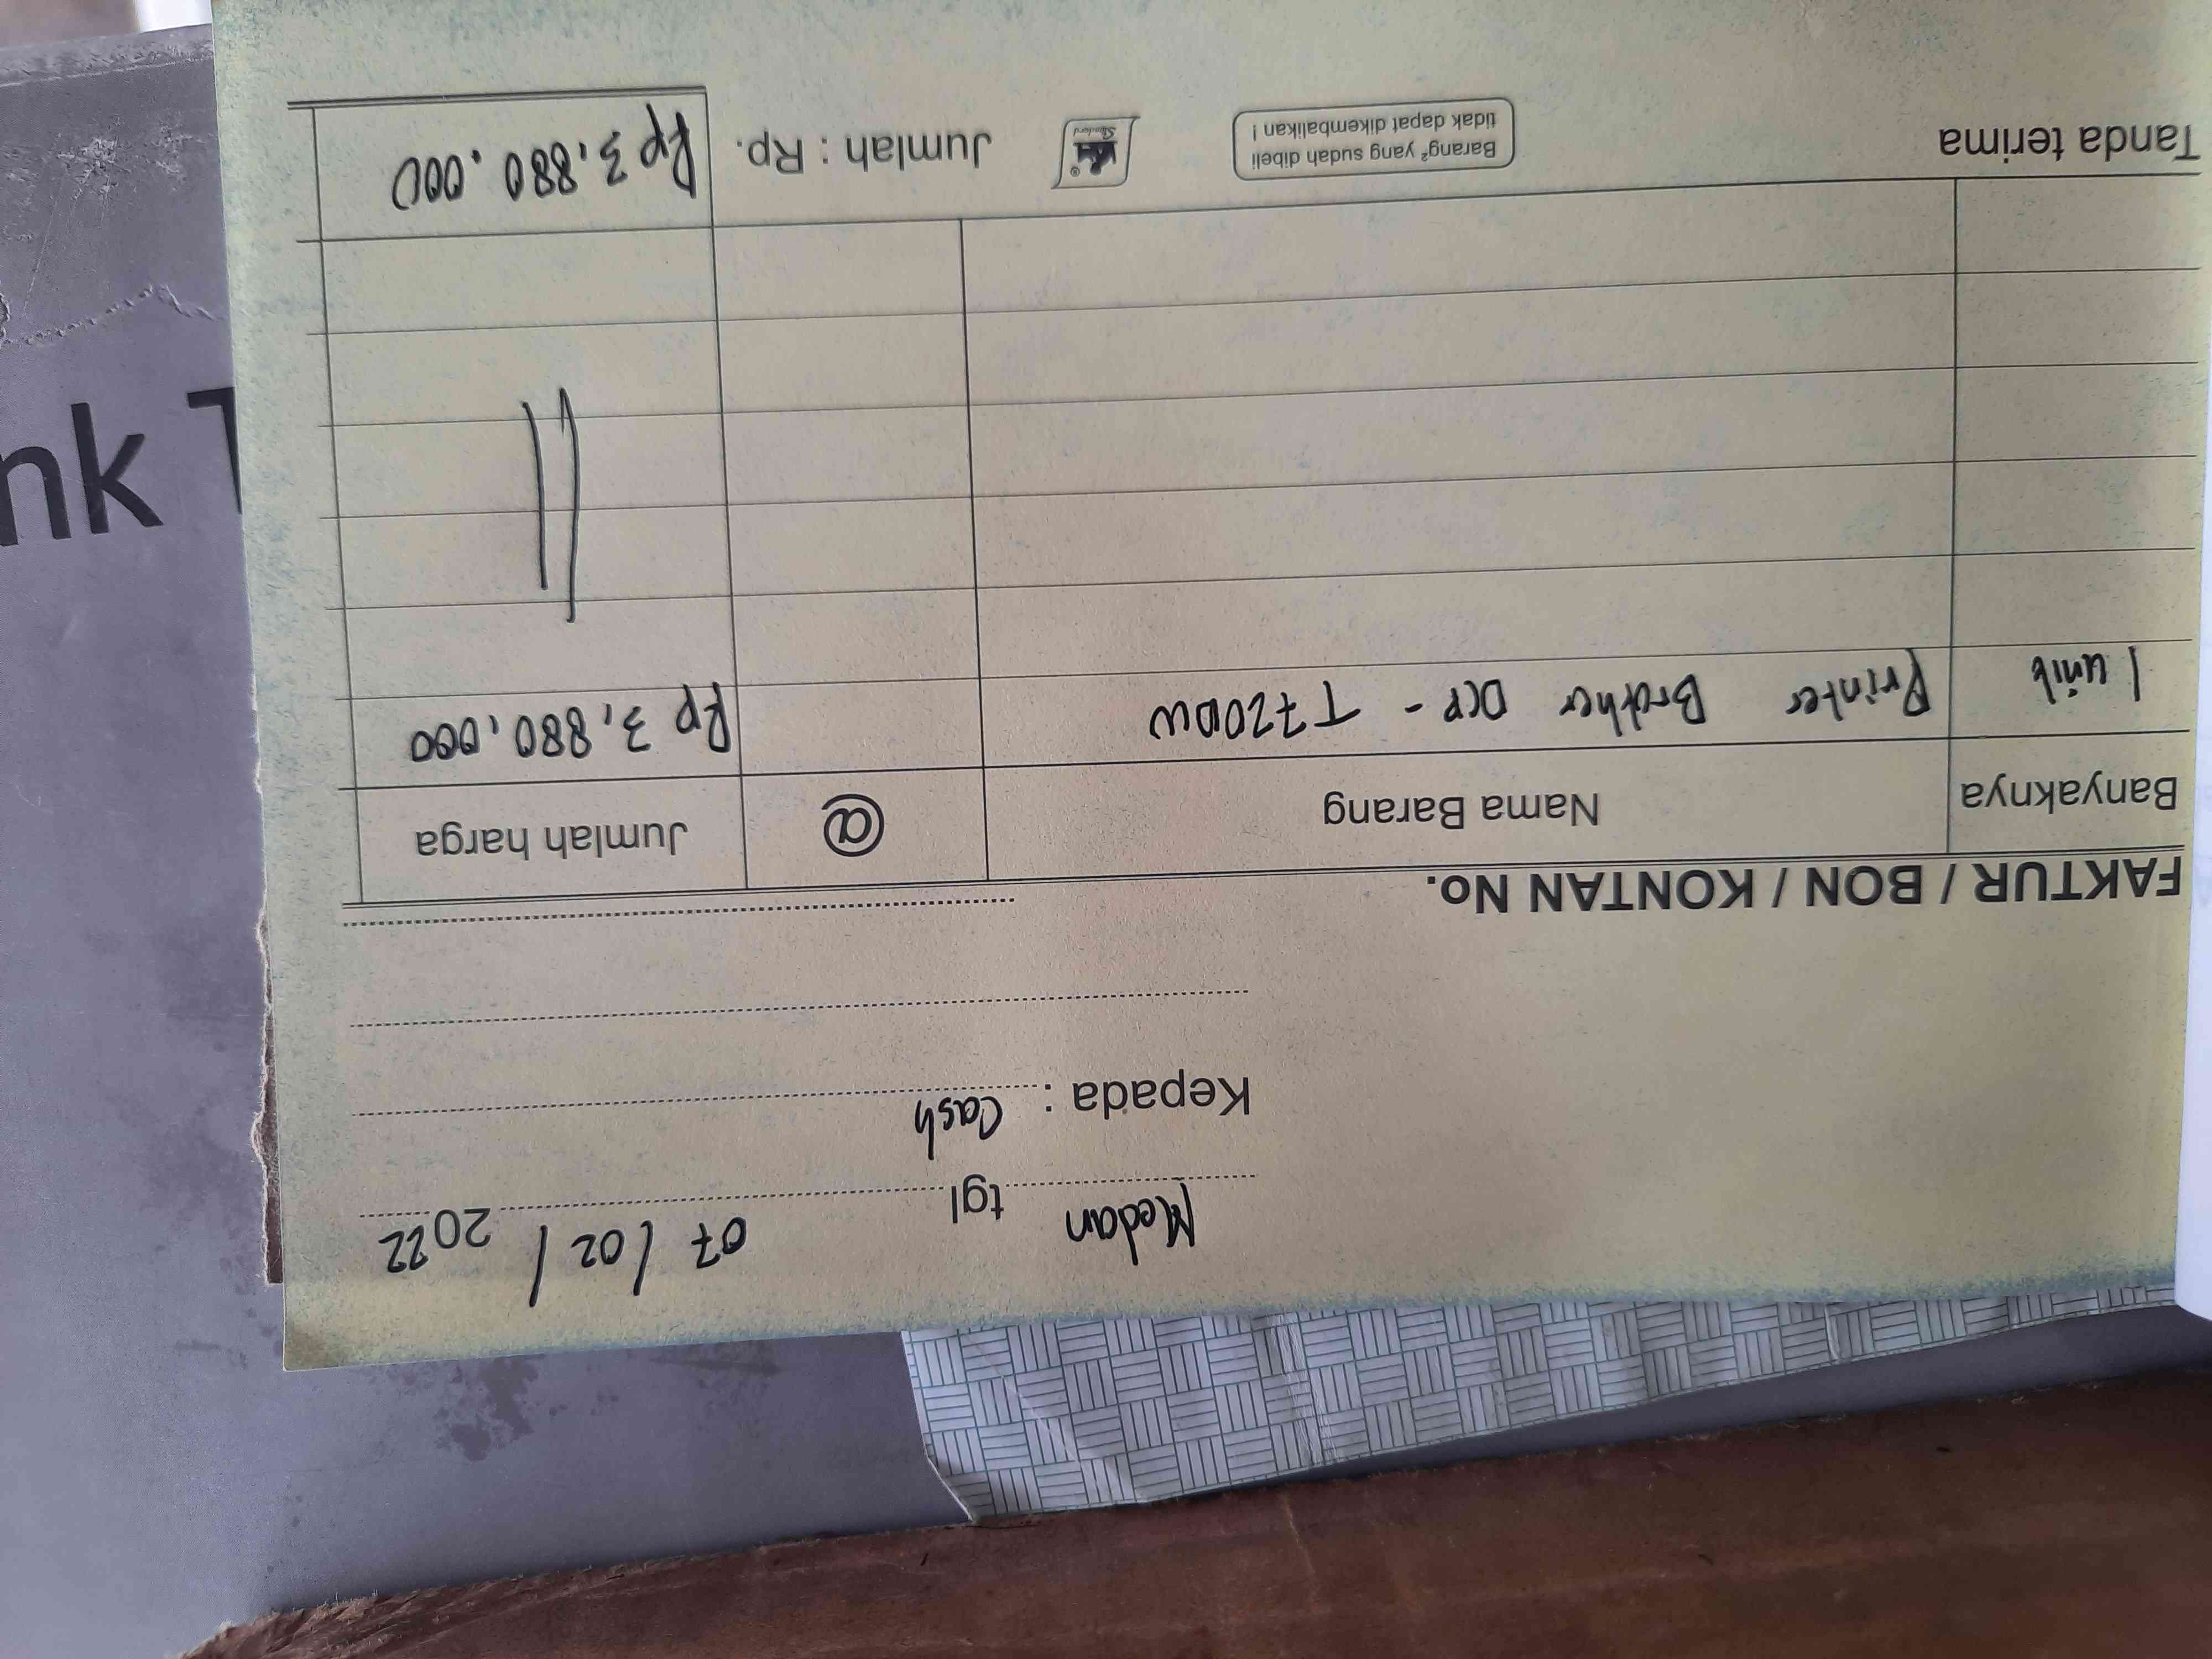 Medan tgl 07 / 02 / 2022
Kepada : Cash
FAKTUR / BON / KONTAN No.
Banyaknya Nama Barang @ Jumlah harga
1 unit Printer Brother DCP - T720DW Rp 3,880,000
Tanda terima
Barang² yang sudah dibeli
tidak dapat dikembalikan !
Standard
Jumlah : Rp. Rp 3,880.000
nk T